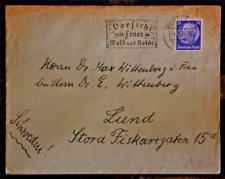 Vorsicht
mit Feuer in
Wald und Heide!
Herrn Dr. Max Wittenberg u. Frau
bei Herrn Dr. E. Wittenberg
Lund
Stora Fiskaregatan 15
Schweden!